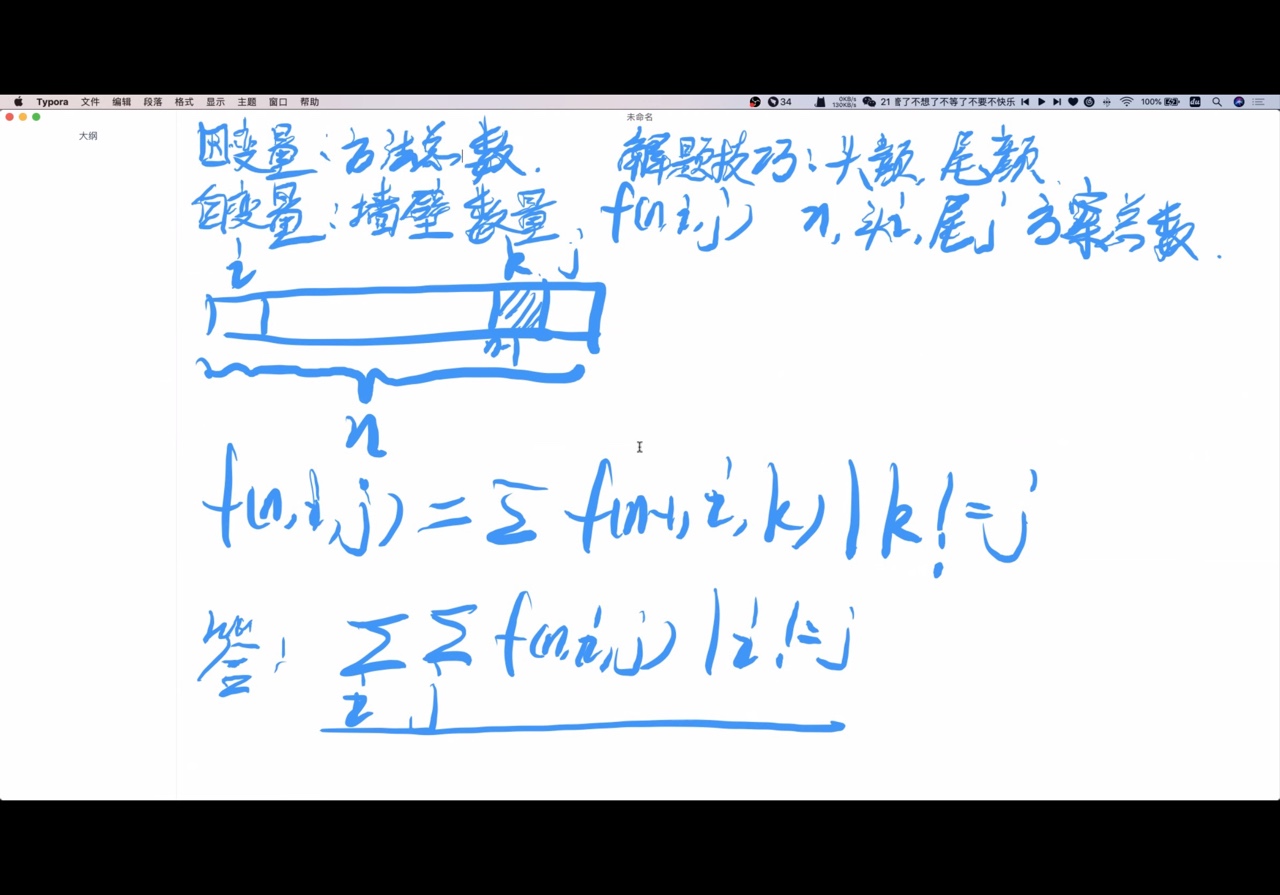 Typora 文件 编辑 段落 格式 显示 主题 窗口 帮助 34 0KB/s 130KB/s 21 了不想了不等了不要不快乐 100%
未命名
大纲
因变量：方法总数. 解题技巧：头颜，尾颜.
自变量：墙壁数量 f(n,i,j) n,头i,尾j 方案总数.
i k j
n-1
n
f(n,i,j) = Σ f(n-1,i,k) | k != j
答: Σ Σ f(n,i,j) | i != j
i j